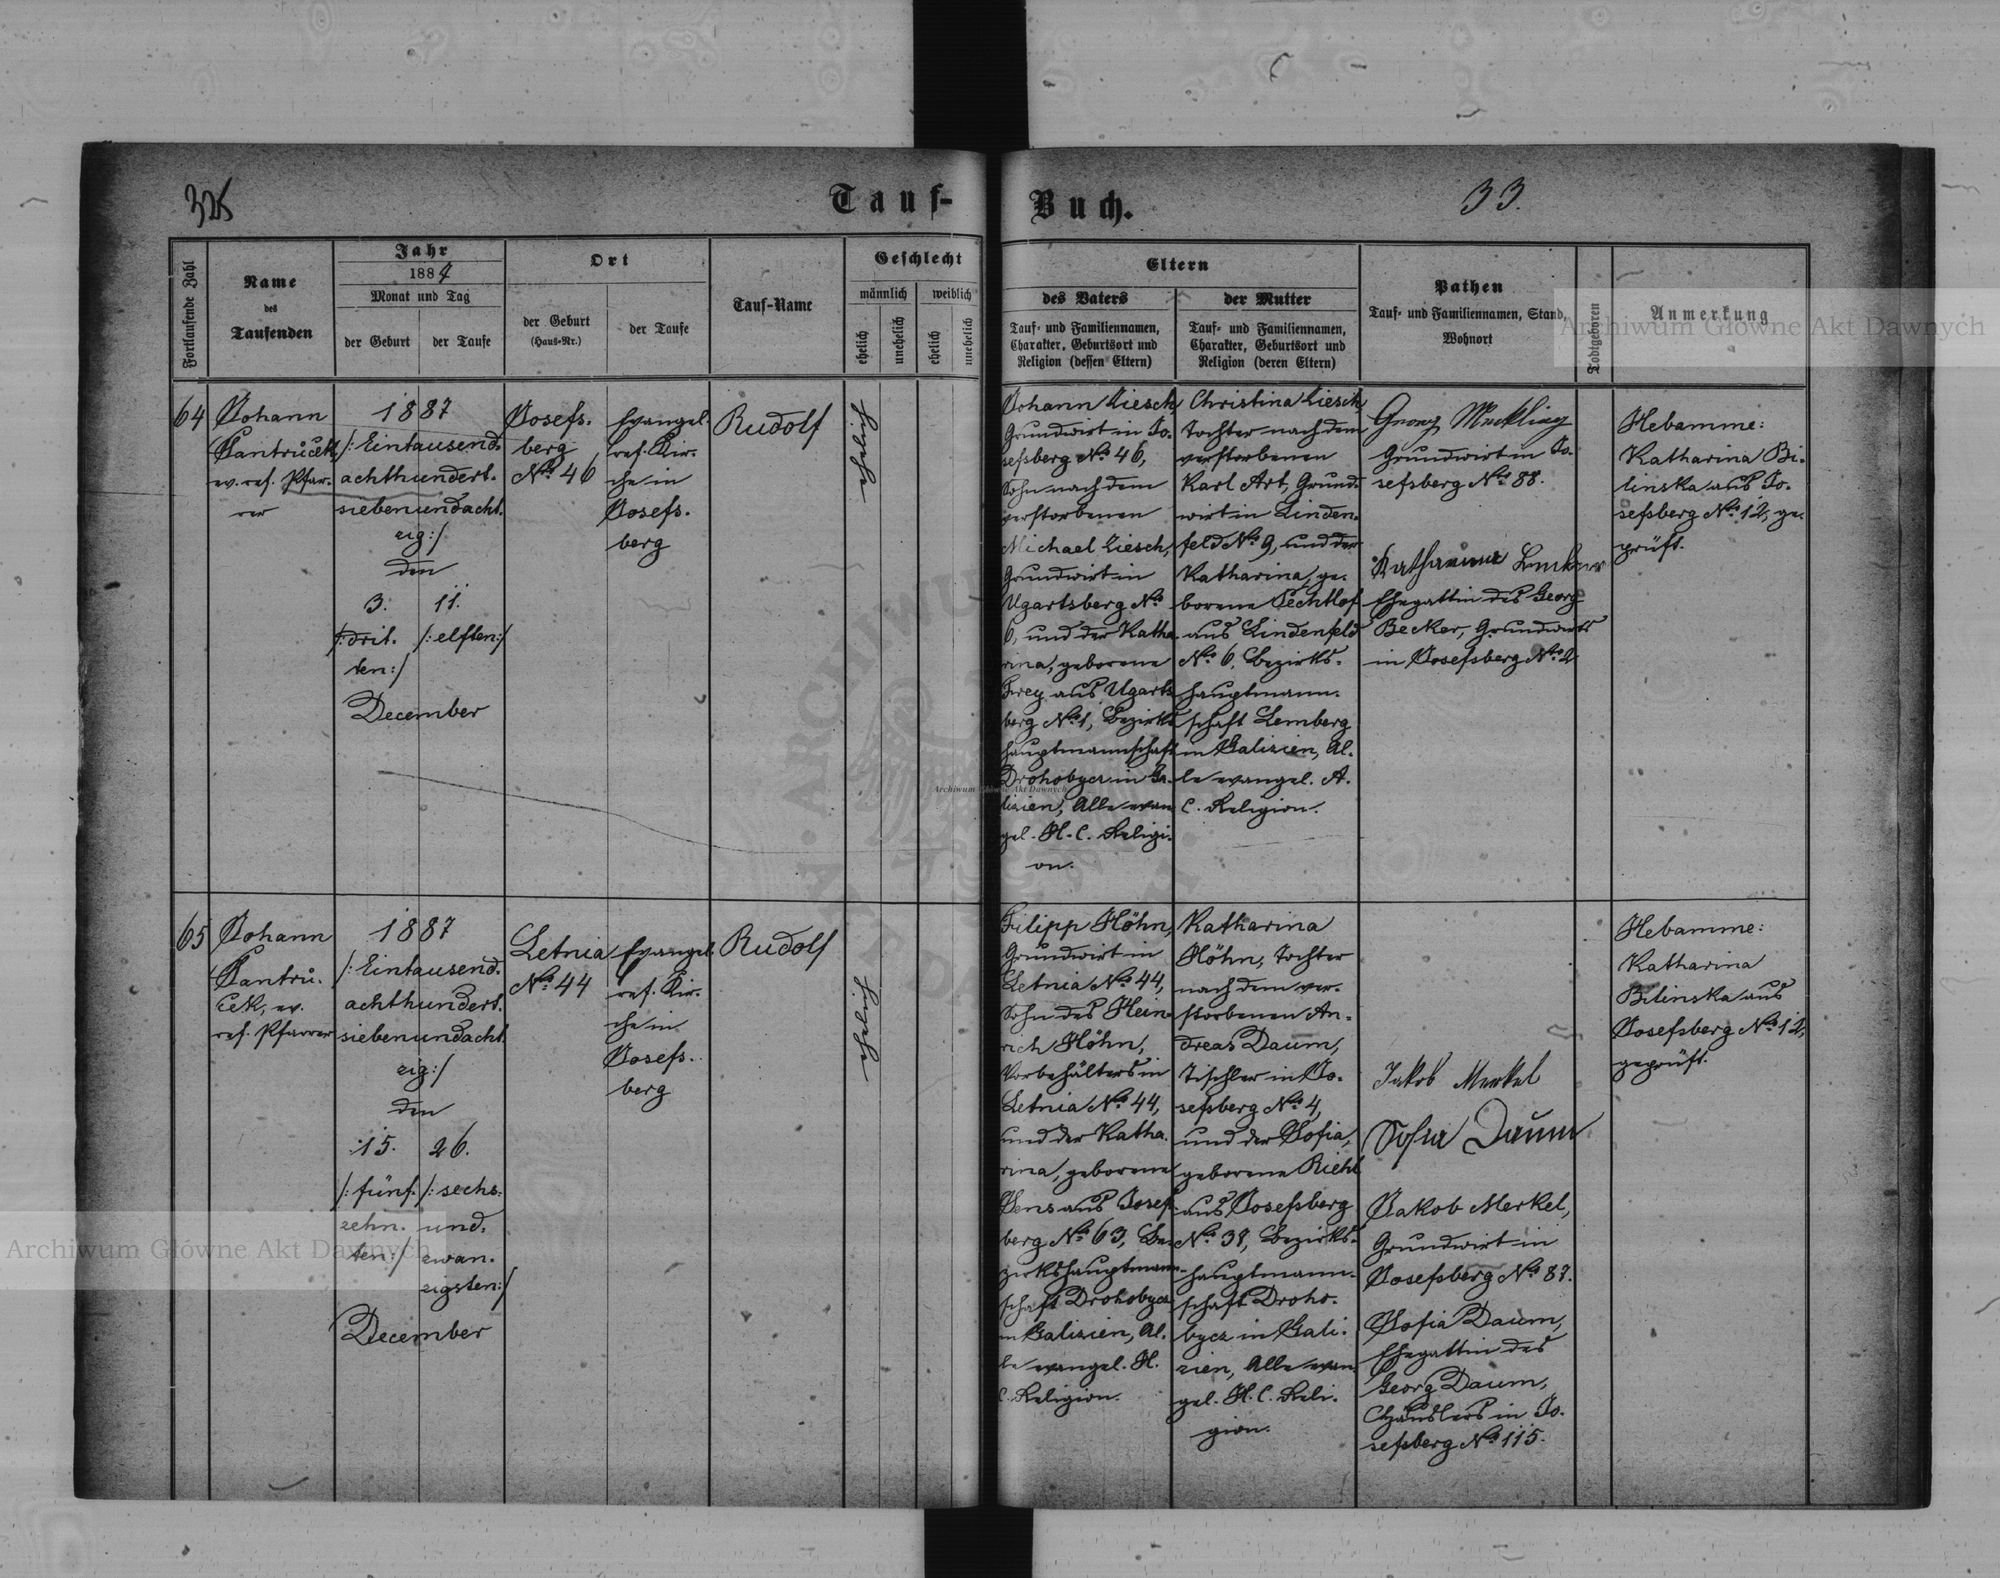 Tauf-
Buch.
33.
Fortlaufende Zahl
Name
des
Taufenden
Jahr
1887
Monat und Tag
der Geburt
der Taufe
Ort
der Geburt
(Haus-Nr.)
der Taufe
Tauf-Name
Geschlecht
männlich
weiblich
ehelich
unehelich
ehelich
unehelich
Eltern
des Vaters
Tauf- und Familiennamen,
Charakter, Geburtsort und
Religion (dessen Eltern)
der Mutter
Tauf- und Familiennamen,
Charakter, Geburtsort und
Religion (deren Eltern)
Pathen
Tauf- und Familiennamen, Stand,
Wohnort
Todtgeboren
Anmerkung
64
Johann
Jantrůček
ev. ref. Pfar-
rer
1887
/: Eintausend-
achthundert-
siebenundacht-
zig :/
den
3.
/: drit-
ten :/
11.
/: elften :/
December
Josefs-
berg
No. 46
Evangel.
ref. Kir-
che in
Josefs-
berg
Rudolf
ehelich
Johann Ziesch,
Grundwirt in Jo-
sefsberg No. 46,
Sohn nach dem
verstorbenen
Michael Ziesch,
Grundwirt in
Ugartsberg No.
6, und der Katha-
rina, geborene
Frey aus Ugarts-
berg No. 1, Bezirks-
hauptmannschaft
Drohobycz in Ga-
lizien, Alle evan-
gel. H. C. Religi-
on.
Christina Ziesch,
Tochter nach dem
verstorbenen
Karl Art, Grund-
wirt in Linden-
feld No. 9, und der
Katharina, ge-
borene Pechtlof
aus Lindenfeld
No. 6, Bezirks-
hauptmann-
schaft Lemberg
in Galizien, Al-
le evangel. A.
C. Religion.
Georg Meckling
Grundwirt in Jo-
sefsberg No. 88.
Katharina
Ehegattin des Georg
Becker, Grundwirts
in Josefsberg No. 2
Hebamme:
Katharina Bi-
linska aus Jo-
sefsberg No. 12, ge-
prüft.
65
Johann
Jantrů-
ček, ev.
ref. Pfarrer
1887
/: Eintausend-
achthundert-
siebenundacht-
zig :/
den
15.
/: fünf-
zehn-
ten :/
26.
/: sechs-
und-
zwan-
zigsten :/
December
Letnia
No. 44
Evangel.
ref. Kir-
che in
Josefs-
berg
Rudolf
ehelich
Filipp Höhn,
Grundwirt in
Letnia No. 44,
Sohn des Hein-
rich Höhn,
Vorbehälters in
Letnia No. 44,
und der Katha-
rina, geborene
Jens aus Josefs-
berg No. 63, Be-
zirkshauptmann-
schaft Drohobycz
in Galizien, Al-
le evangel. H.
C. Religion.
Katharina
Höhn, Tochter
nach dem ver-
storbenen An-
dreas Daum,
Tischler in Jo-
sefsberg No. 4,
und der Sofia,
geborene Riehl
aus Josefsberg
No. 38, Bezirks-
hauptmann-
schaft Droho-
bycz in Gali-
zien, Alle evan-
gel. H. C. Reli-
gion.
Jakob Merkel
Sofia Daum
Jakob Merkel,
Grundwirt in
Josefsberg No. 87.
Sofia Daum,
Ehegattin des
Georg Daum,
Händlers in Jo-
sefsberg No. 115.
Hebamme:
Katharina
Bilinska aus
Josefsberg No. 12,
geprüft.
Archiwum Główne Akt Dawnych
Archiwum Główne Akt Dawnych
Archiwum Główne Akt Dawnych